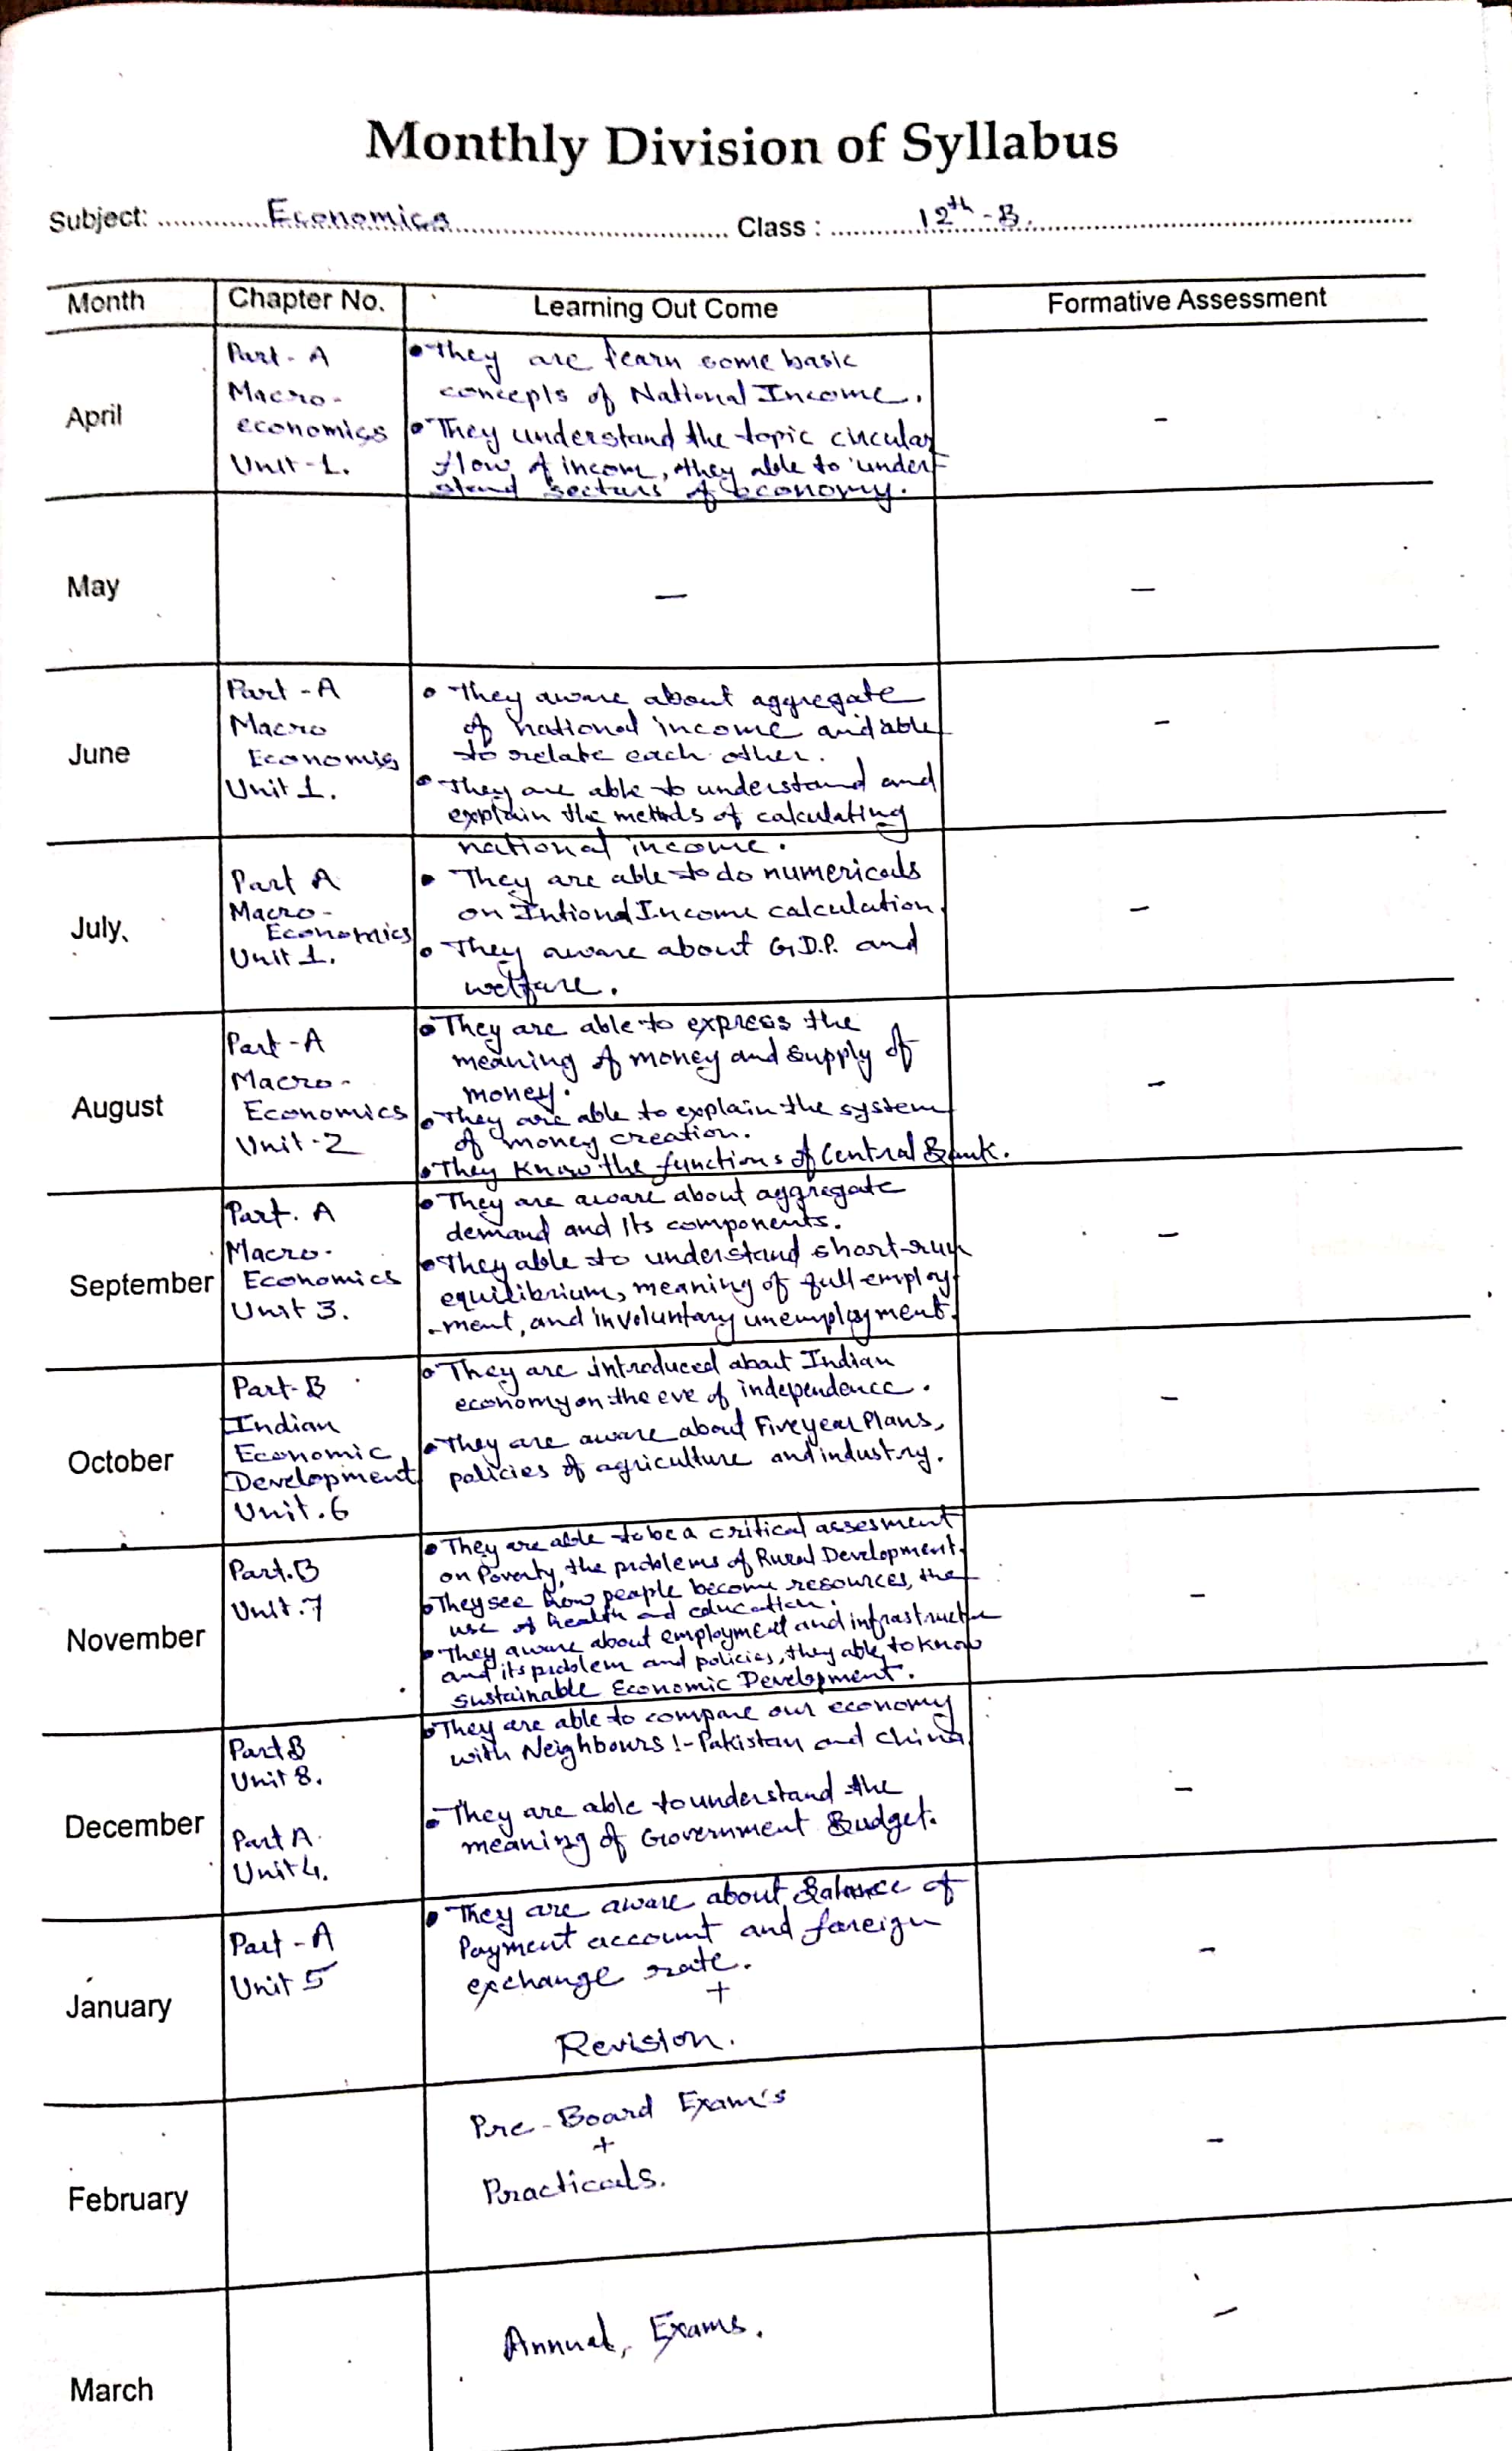 Monthly Division of Syllabus
Subject: Economics Class : 12th - B.
Month Chapter No. Learning Out Come Formative Assessment
April
Part - A
Macro-
economics
Unit - 1.
• They are learn some basic
concepts of National Income.
• They understand the topic circular
flow of incom, they able to under-
stand sectors of Economy.
-
May
-
-
June
Part - A
Macro
Economis
Unit 1.
• They aware about aggregate
of national income and able
to relate each other.
• They are able to understand and
explain the methds of calculating
national income.
-
July
Part A
Macro-
Economics
Unit 1.
• They are able to do numericals
on Intional Income calculation.
• They aware about G.D.P. and
welfare.
-
August
Part - A
Macro-
Economics
Unit - 2
• They are able to express the
meaning of money and supply of
money.
• They are able to explain the system
of money creation.
• They know the functions of Central Bank.
-
September
Part. A
Macro-
Economics
Unit 3.
• They are aware about aggregate
demand and its components.
• They able to understand short-run
equilibrium, meaning of full employ-
-ment, and involuntary unemployment.
-
October
Part-B
Indian
Economic
Development
Unit. 6
• They are introduced about Indian
economy on the eve of independence.
• They are aware about Five year Plans,
policies of agriculture and industry.
-
November
Part. B
Unit. 7
• They are able to be a critical assesment
on Poverty, the problems of Rural Development.
• They see how people become resources, the
use of health and education.
• They aware about employment and infrastructure
and its problem and policies, they able to know
sustainable Economic Development.
-
December
Part B
Unit 8.
Part A.
Unit 4.
• They are able to compare our economy
with Neighbours :- Pakistan and China
• They are able to understand the
meaning of Government Budget.
-
January
Part - A
Unit 5
• They are aware about Balance of
Payment account and foreign
exchange rate.
+
Revision.
-
February
Pre-Board Exam's
+
Practicals.
-
March
Annual, Exams.
-